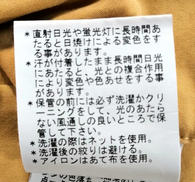 *直射日光や蛍光灯に長時間あ
たると日焼けによる変色をす
る事があります。
*汗が付着したまま長時間日光
にあたると、光との複合作用
による変色や色あせをする事
があります。
*保管の前には必ず洗濯かクリ
ーニングをして、光のあたら
ない風通しの良いところで保
管して下さい。
*洗濯の際はネットを使用。
*洗濯後の絞りは避ける。
*アイロンはあて布を使用。